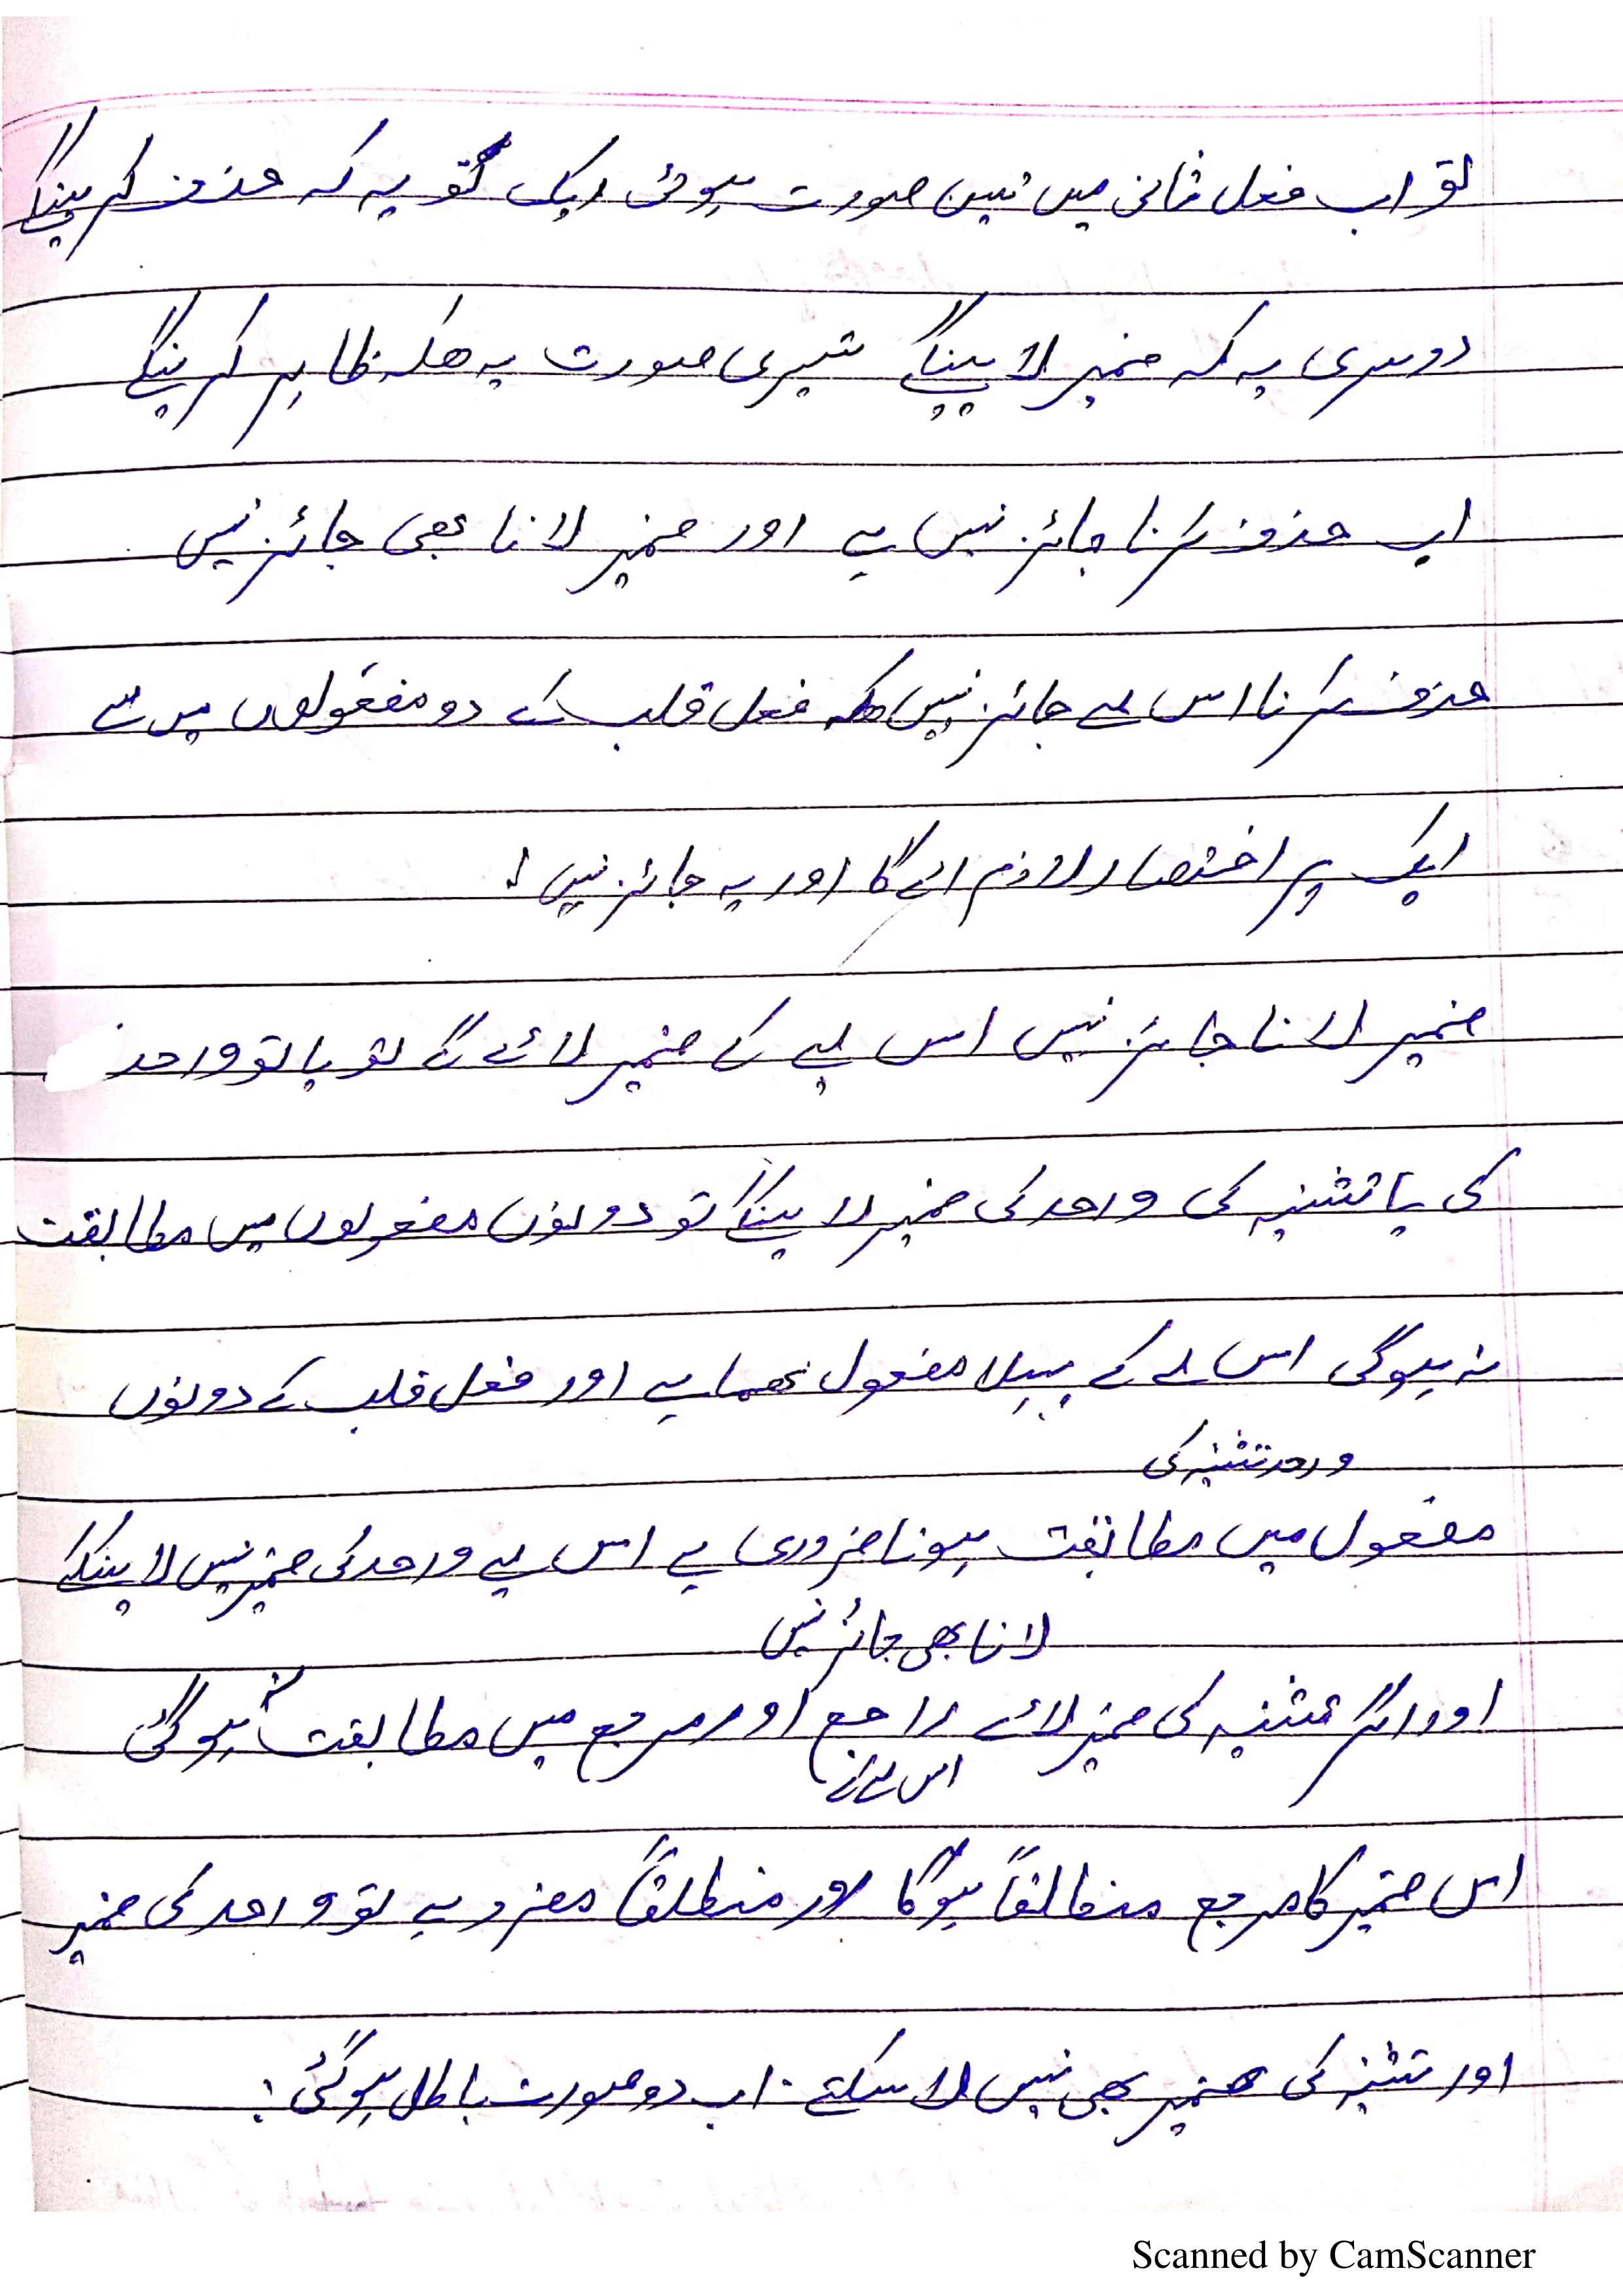 تو اب فعل ثانی میں تین صورت ہوئی ایک تو یہ کہ حذف کرینگے
دوسری یہ کہ ضمیر لایینگے تیسری صورت یہ ھیکہ ظاہر کرینگے
اب حذف کرنا جائز نہیں ہے اور ضمیر لانا بھی جائز نہیں
حذف کرنا اس لیے جائز نہیں ھیکہ فعل قلب کے دو مفعولوں میں سے
ایک پر اختصار لازم ائے گا اور یہ جائز نہیں ۔
ضمیر لانا جائز نہیں اس لیے کے ضمیر لائے گے تو یا تو واحد
کی یا تثنیہ کی واحد کی ضمیر لایینگے تو دونوں مفعولوں میں مطابقت
نہ ہوگی اس لے کے پہلا مفعول ھما ہے اور فعل قلب کے دونوں
واحد تثنیہ کی
مفعول میں مطابقت ہونا ضروری ہے اس لیے واحد کی ضمیر نہیں لایینگے
لانا بھی جائز نہیں
اور اگر تثنیہ کی ضمیر لائے راجع اور مرجع میں مطابقت نہ ہوگی
اس لے کے
اس ضمیر کا مرجع منطلقاً ہوگا اور منطلقاً مفرد ہے تو واحد کی ضمیر
اور تثنیہ کی ضمیر بھی نہیں لا سکتے ۔ اب دو صورت باطل ہوگئی :
Scanned by CamScanner